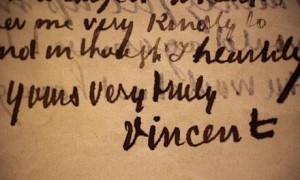 me very kindly to
in though I heartily
yours very truly
Vincent